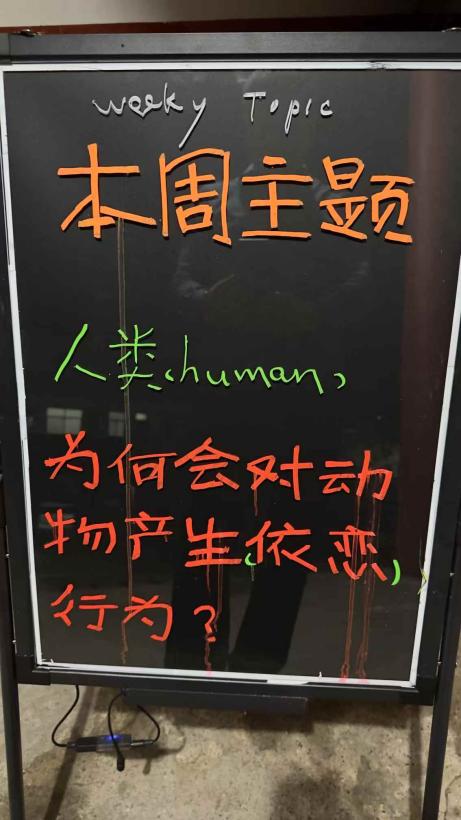 weeky Topic
本周主题
人类(human)
为何会对动
物产生(依恋)
行为?